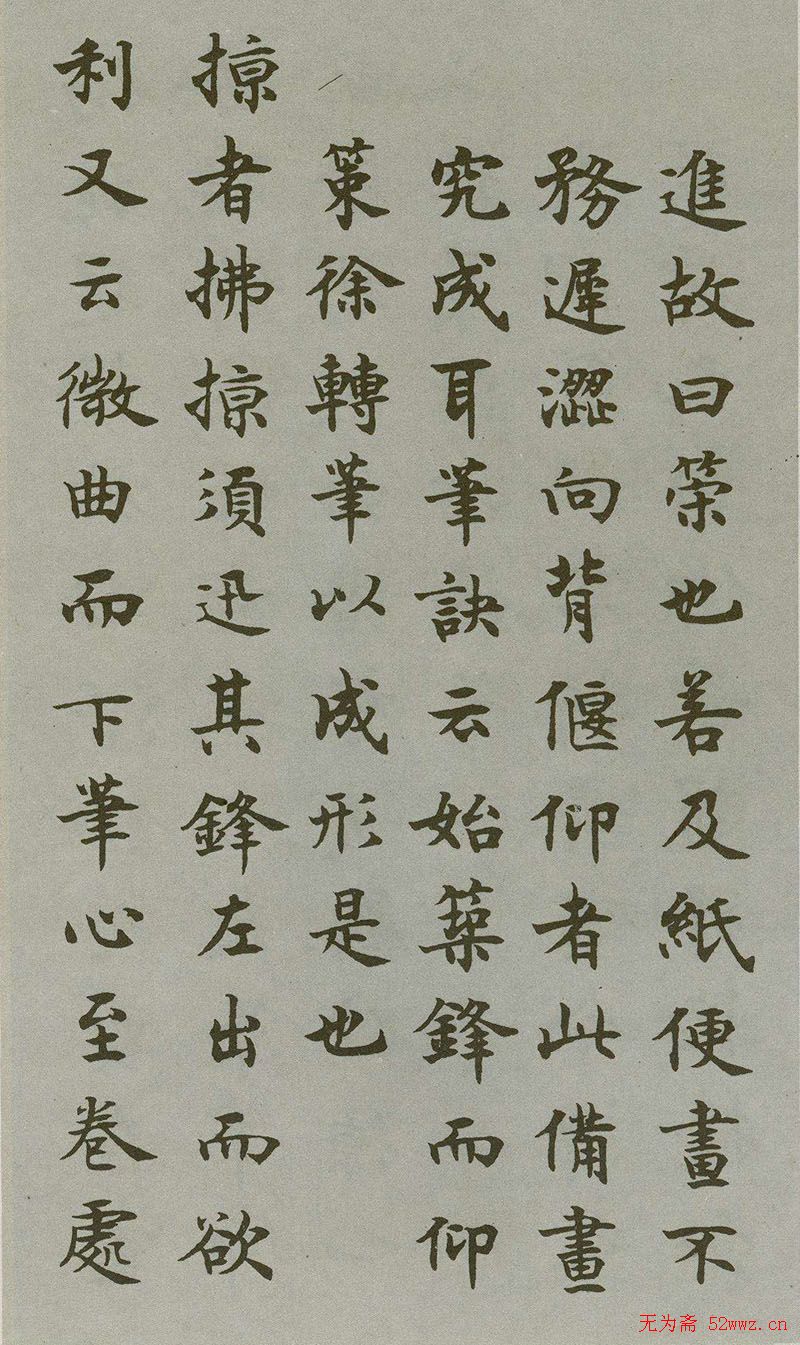 進故曰策也若及紙便畫不
務遲澀向背偃仰者此備畫
究成耳筆訣云始築鋒而仰
策徐轉筆以成形是也
掠者拂掠須迅其鋒左出而欲
利又云微曲而下筆心至卷處
无为斋 52wwz.cn